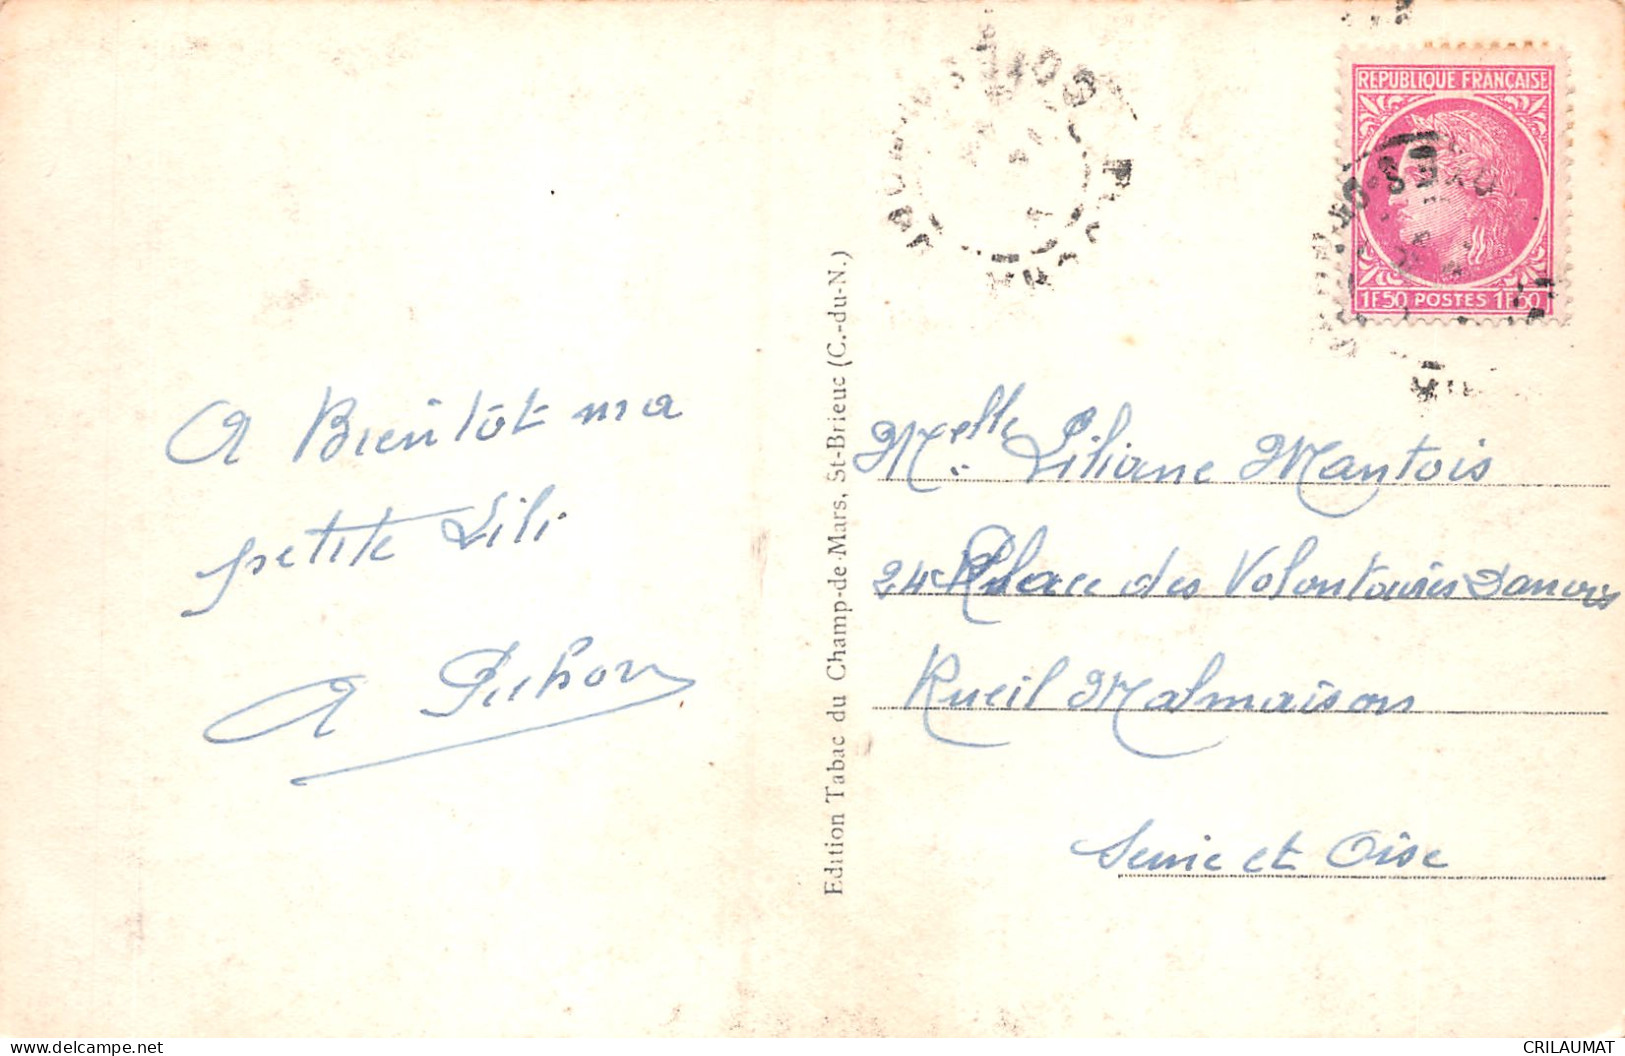 A Bientôt ma
petite Lili
A
Edition Tabac du Champ-de-Mars, St-Brieuc (C.-du-N.)
REPUBLIQUE FRANÇAISE
1F50 POSTES 1F50
Melle Liliane Mantois
24 Place des Volontaires
Rueil Malmaison
Seine et Oise
CRILAUMAT